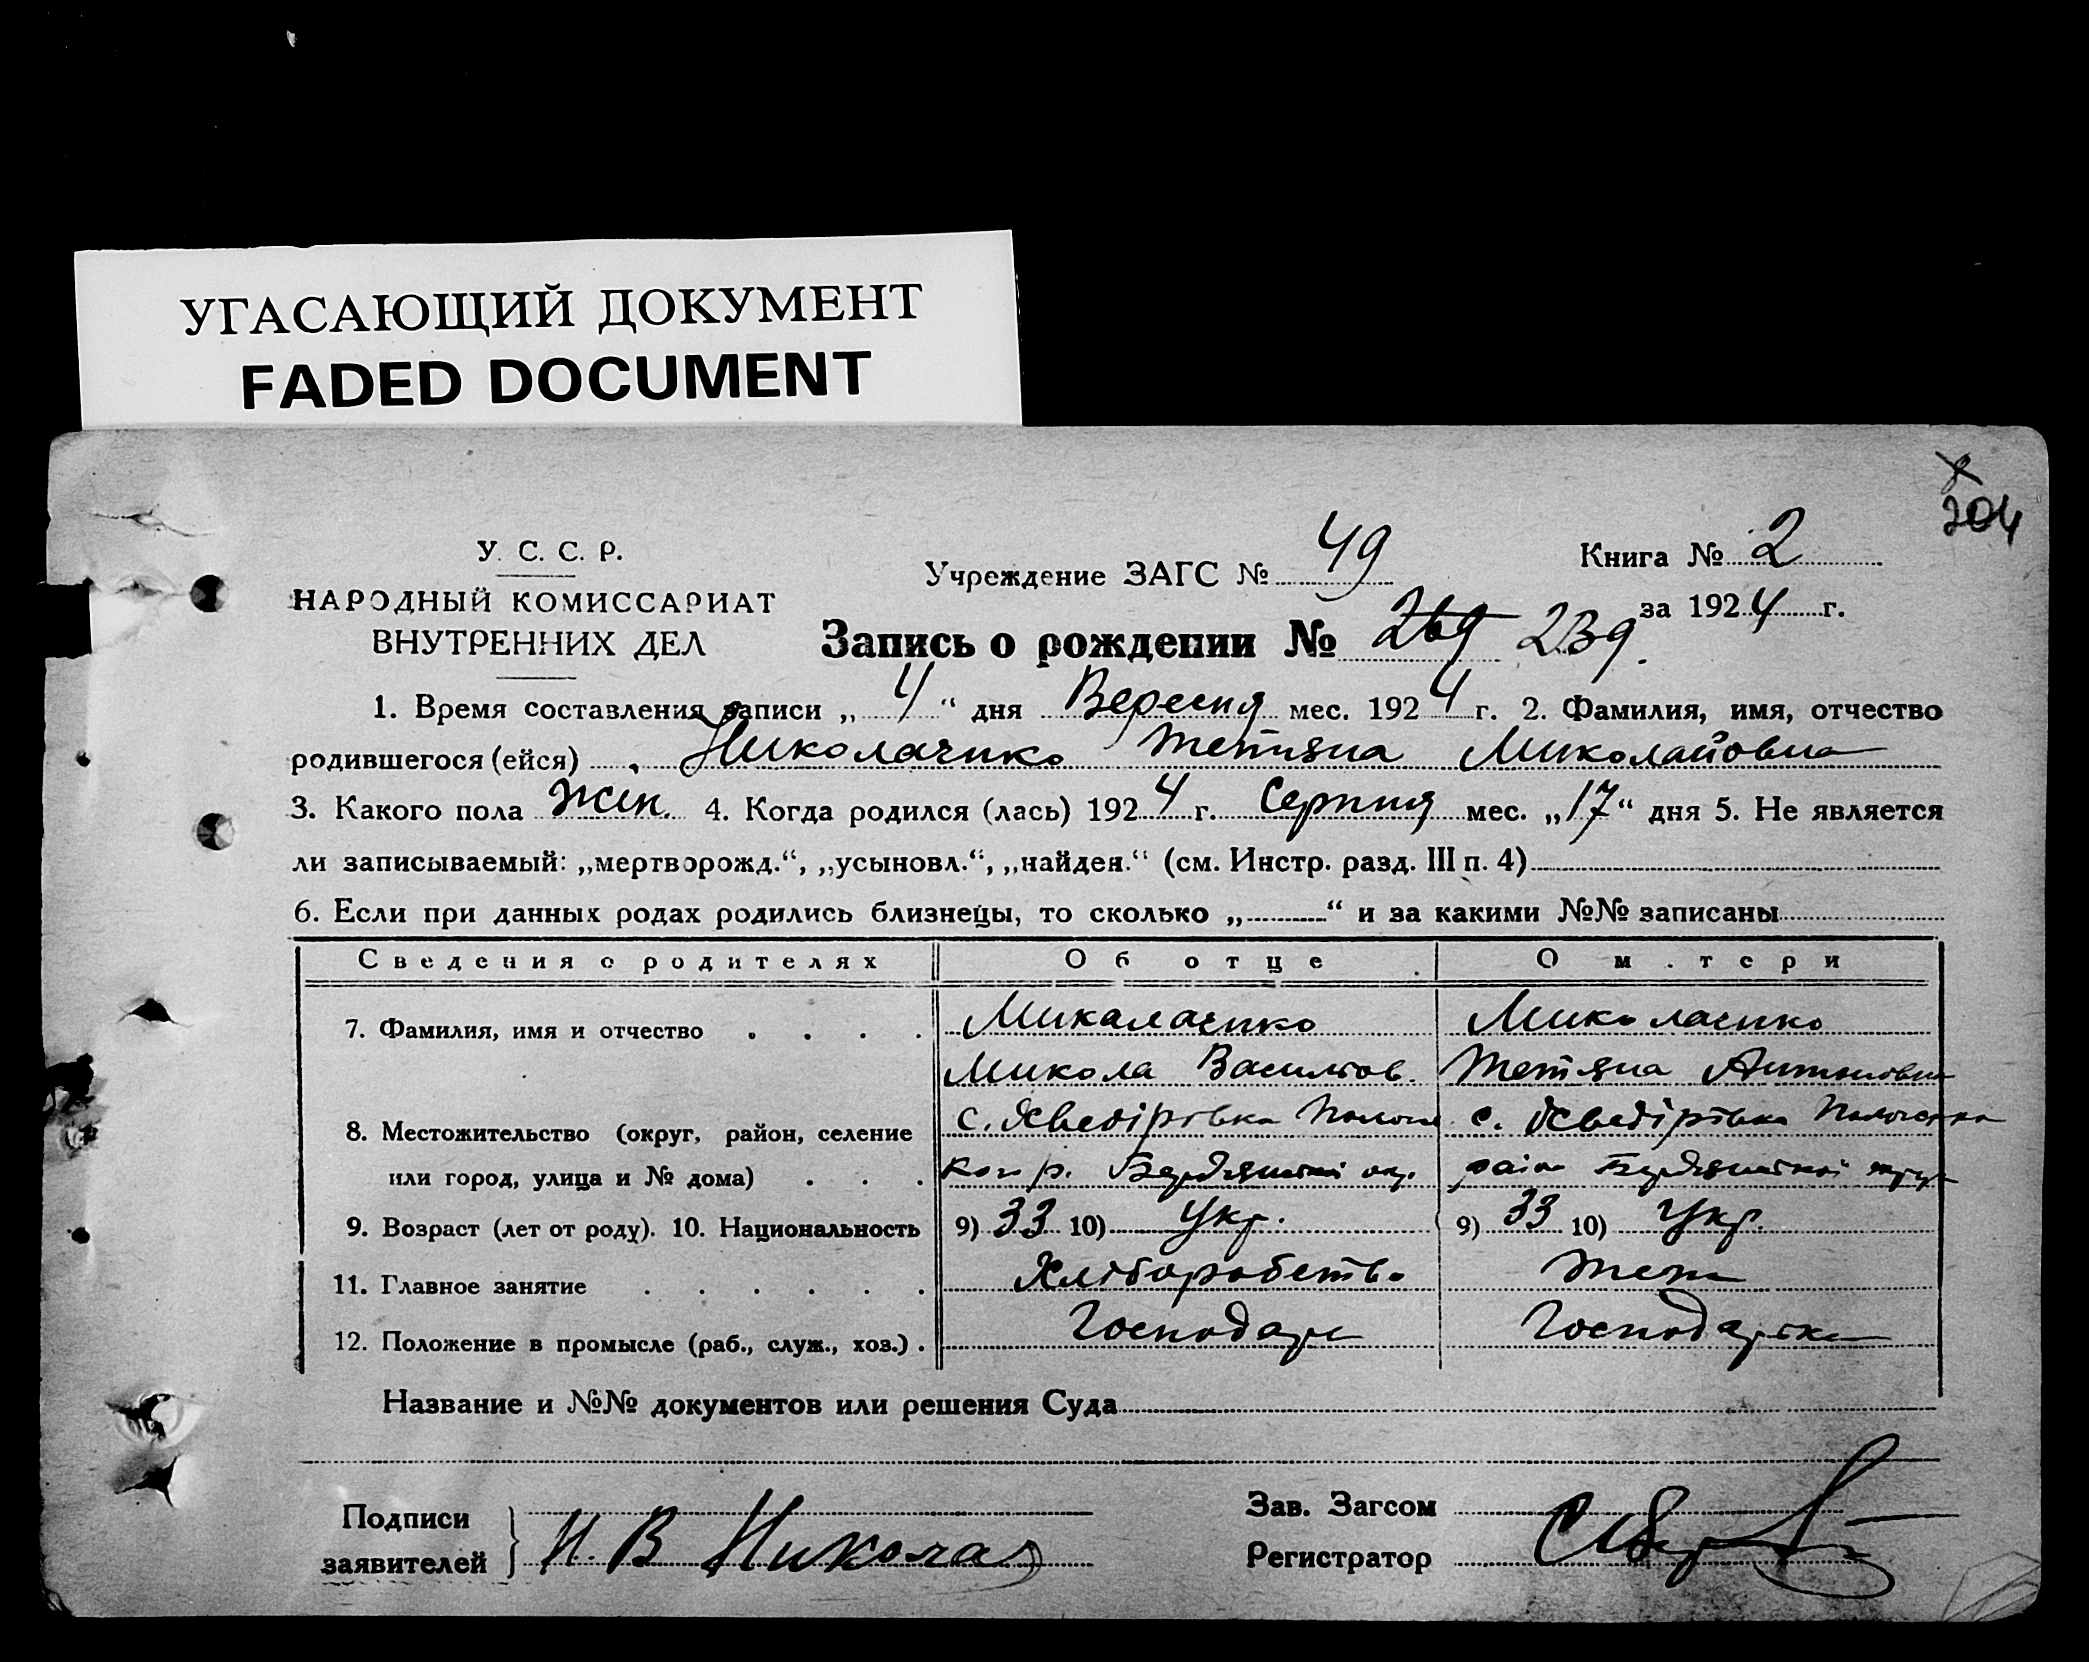 УГАСАЮЩИЙ ДОКУМЕНТ
FADED DOCUMENT
204
У. С. С. Р.
НАРОДНЫЙ КОМИССАРИАТ
ВНУТРЕННИХ ДЕЛ
Учреждение ЗАГС № 49
Книга № 2
за 1924 г.
Запись о рождении № 269 239.
1. Время составления записи „4“ дня Вересня мес. 1924 г. 2. Фамилия, имя, отчество
родившегося (ейся) Николаенко Тетяна Миколайовна
3. Какого пола Жен. 4. Когда родился (лась) 1924 г. Серпня мес. „17“ дня 5. Не является
ли записываемый: „мертворожд.“, „усыновл.“, „найден.“ (см. Инстр. разд. III п. 4)
6. Если при данных родах родились близнецы, то сколько „ “ и за какими №№ записаны
Сведения о родителях Об отце О м.тери
7. Фамилия, имя и отчество Микалаенко Миколаенко
Микола Василов. Тетяна Антоновна
8. Местожительство (округ, район, селение с. с.
или город, улица и № дома) р. Бердянської ок. район Бердянської округи
9. Возраст (лет от роду). 10. Национальность 9) 33 10) Укр. 9) 33 10) Укр.
11. Главное занятие Хліборобство Жена
12. Положение в промысле (раб., служ., хоз.) Господарь Господарька
Название и №№ документов или решения Суда
Подписи
заявителей Н. В Никола
Зав. Загсом
Регистратор